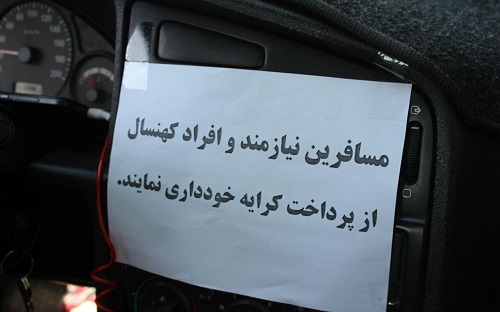 مسافرین نیازمند و افراد کهنسال
از پرداخت کرایه خودداری نمایند.